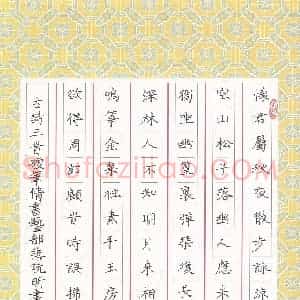 懷君屬秋夜散步詠涼
空山松子落幽人應未
獨坐幽篁裏彈琴復長
深林人不知明月來相
鳴箏金粟柱素手玉房
欲得周郎顧旹時誤拂
古詩三首